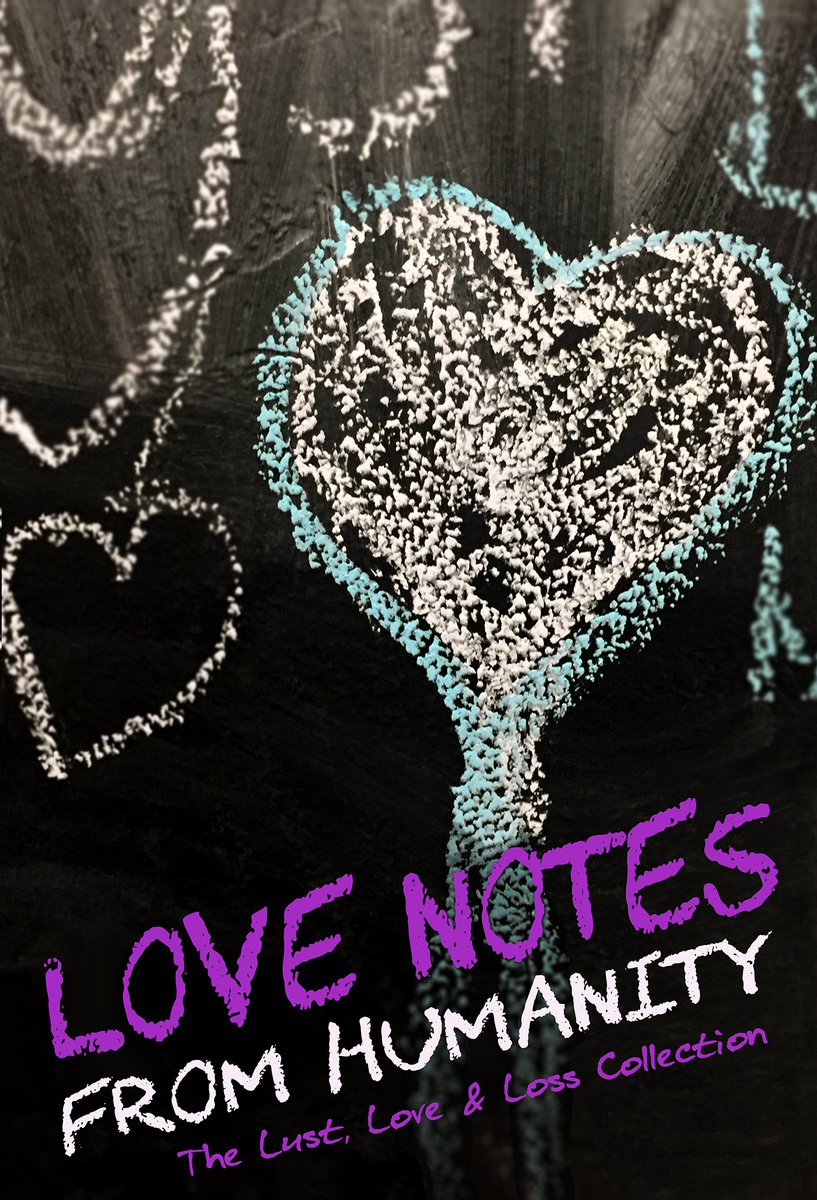 LOVE NOTES
FROM HUMANITY
The Lust, Love & Loss Collection